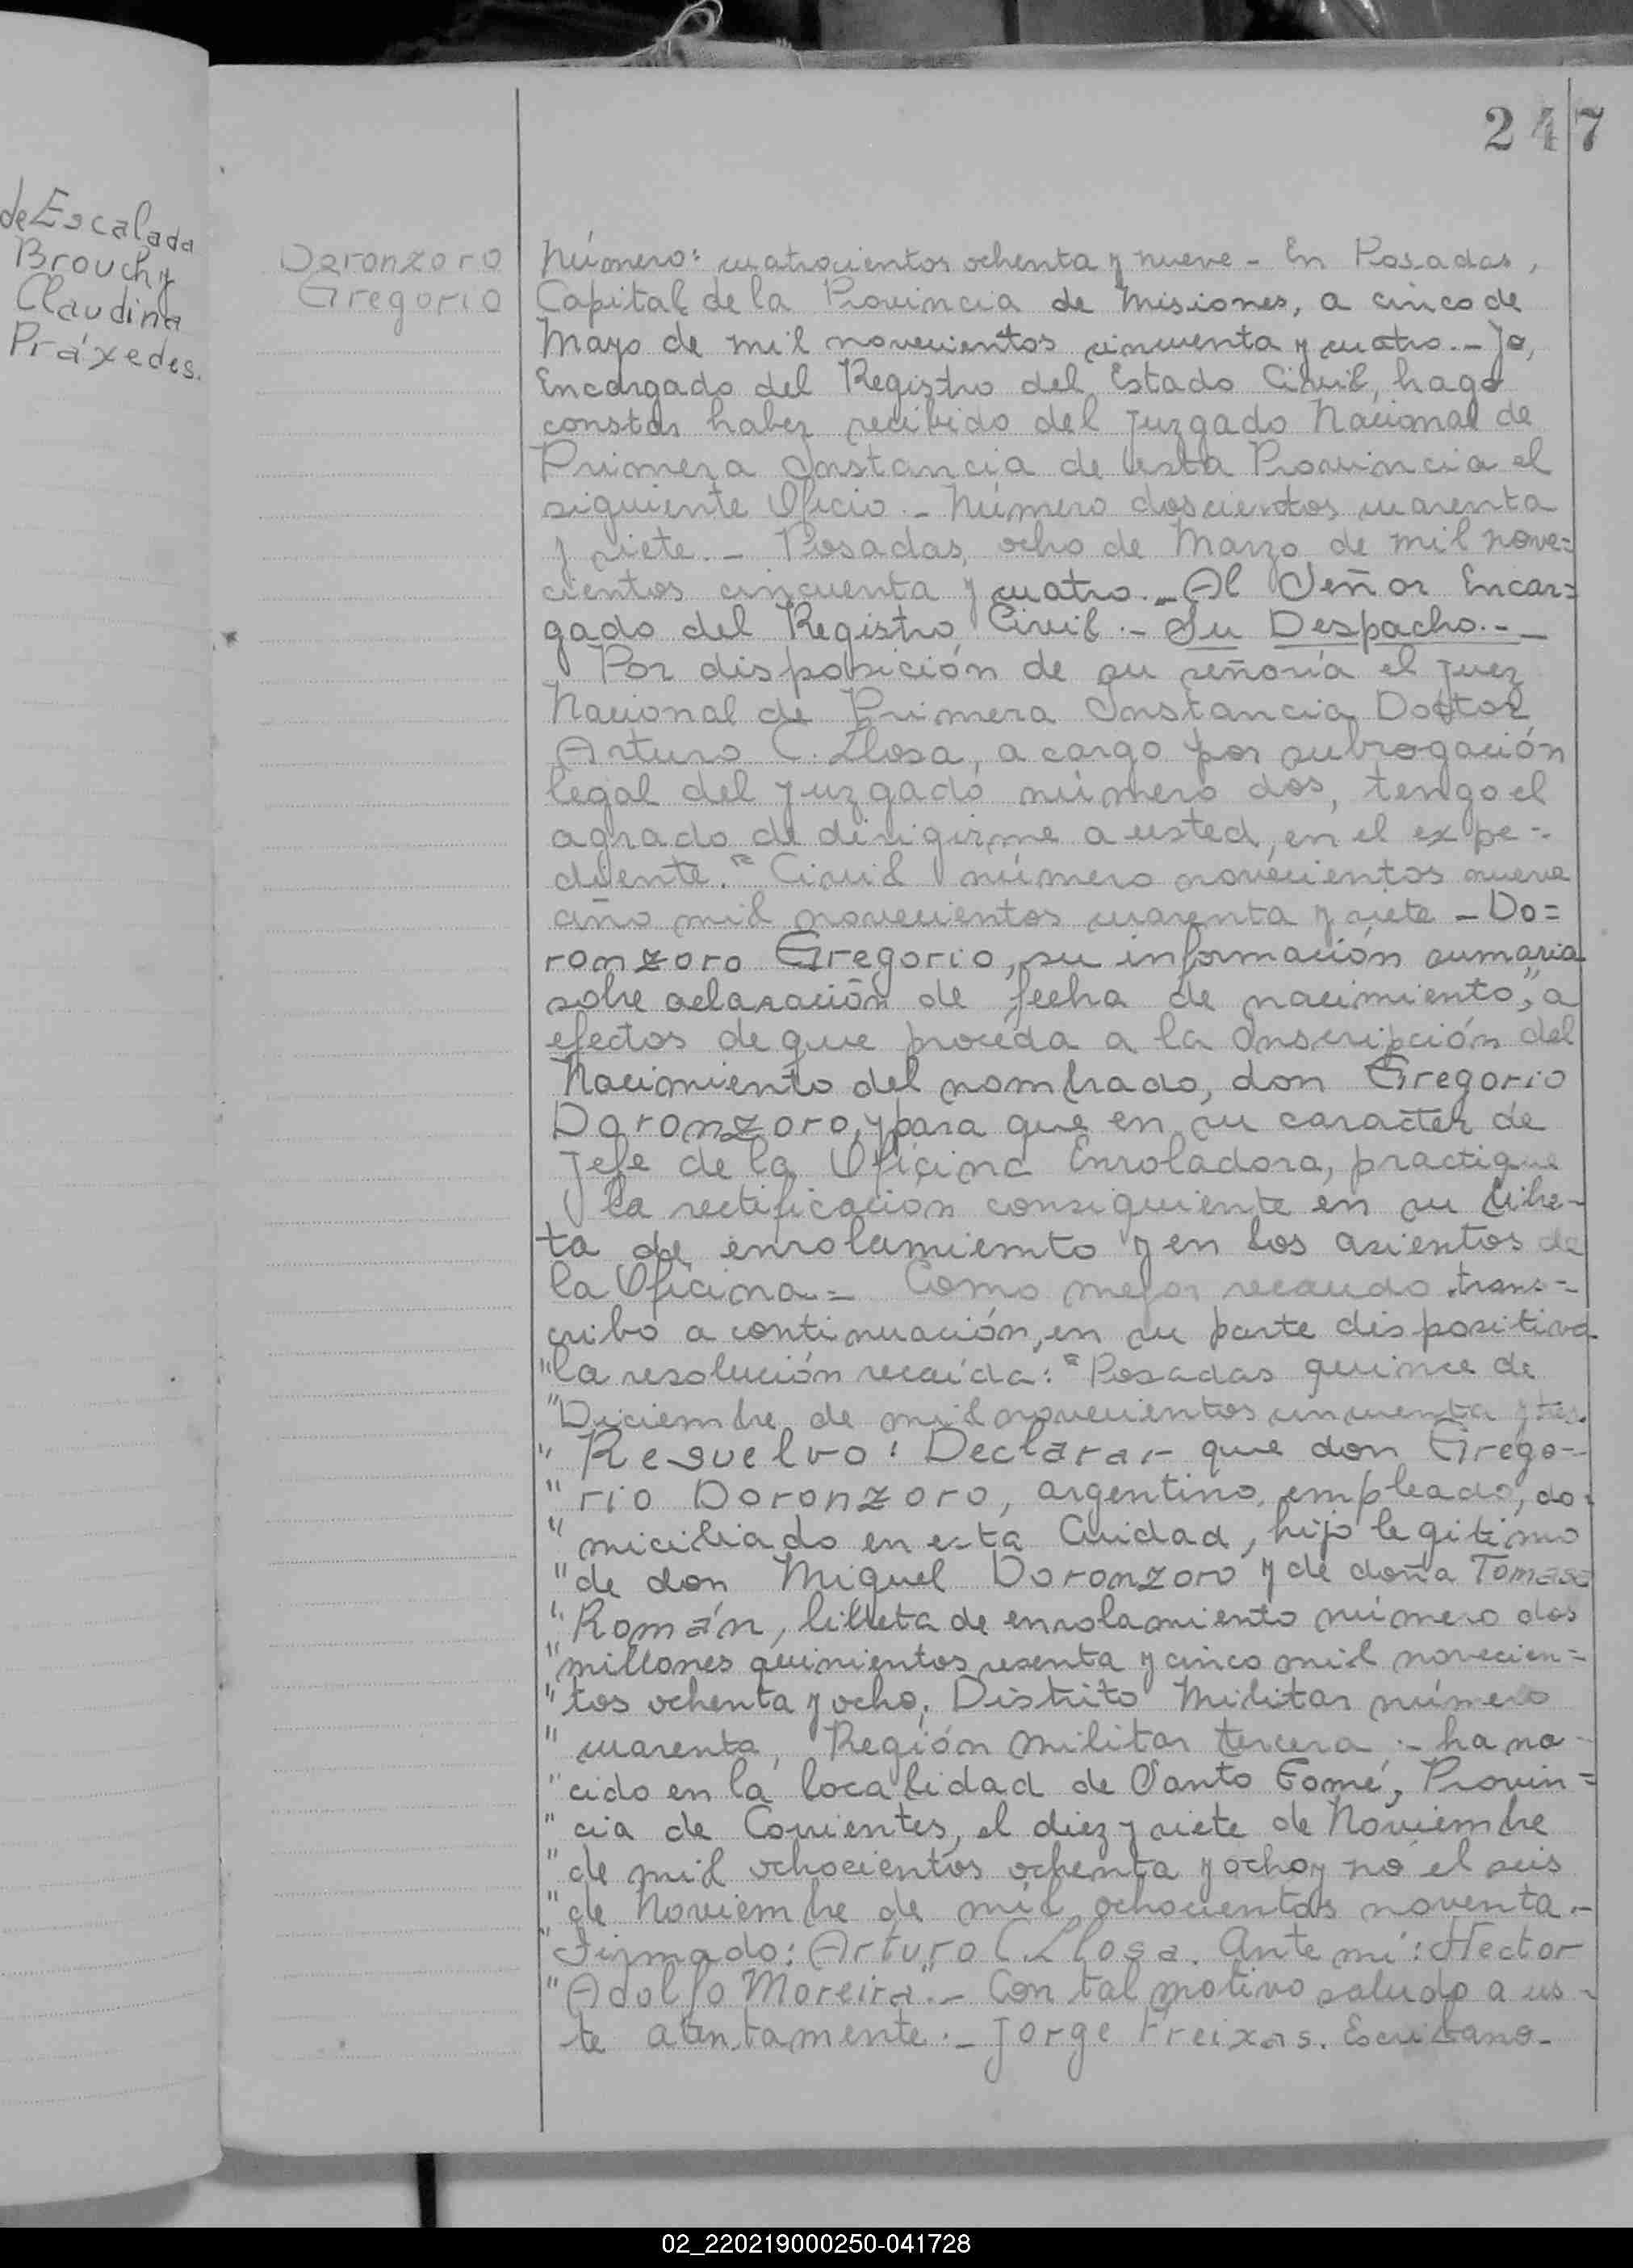 247
de Escalada
Brouchy
Claudina
Práxedes.
Doronzoro
Gregorio
Número: cuatrocientos ochenta y nueve - En Posadas,
Capital de la Provincia de Misiones, a cinco de
Mayo de mil novecientos cincuenta y cuatro.- Yo,
Encargado del Registro del Estado Civil, hago
constar haber recibido del Juzgado Nacional de
Primera Instancia de esta Provincia el
siguiente Oficio.- Número doscientos cuarenta
y siete.- Posadas, ocho de Marzo de mil nove=
cientos cincuenta y cuatro.- Al Señor Encar=
gado del Registro Civil.- Su Despacho.-
Por disposición de su señoría el Juez
Nacional de Primera Instancia Doctor
Arturo C. Llosa, a cargo por subrogación
legal del Juzgado número dos, tengo el
agrado de dirigirme a usted, en el expe-
diente. "Civil número novecientos nueve
año mil novecientos cuarenta y siete - Do=
ronzoro Gregorio, su información sumaria
sobre aclaración de fecha de nacimiento", a
efectos de que proceda a la Inscripción del
Nacimiento del nombrado, don Gregorio
Doronzoro, y para que en su caracter de
Jefe de la Oficina Enroladora, practique
la rectificación consiguiente en su libre-
ta de enrolamiemto y en los asientos de
la Oficina.= Como mejor recaudo trans-
cribo a continuación, en su parte dispositiva
"la resolución recaída: "Posadas quince de
"Diciembre de mil novecientos cincuenta y tres.
" Resuelvo: Declarar que don Grego-
" rio Doronzoro, argentino, empleado, do-
" miciliado en esta Cuidad, hijo legitimo
"de don Miguel Doronzoro y de doña Tomasa
" Román, libreta de enrolamiento número dos
"millones quinientos sesenta y cinco mil novecien=
"tos ochenta y ocho, Distrito Militar número
" cuarenta, Región militar tercera.- ha na-
"cido en la localidad de Santo Tomé, Provin=
" cia de Corrientes, el diez y siete de Noviembre
"de mil ochocientos ochenta y ocho y no el seis
"de Noviembre de mil ochocientos noventa.-
"Firmado: Arturo C. Llosa. Ante mí: Hector
"Adolfo Moreira".- Con tal motivo saludo a us-
te atentamente.- Jorge Freixas. Escribano-
02_220219000250-041728